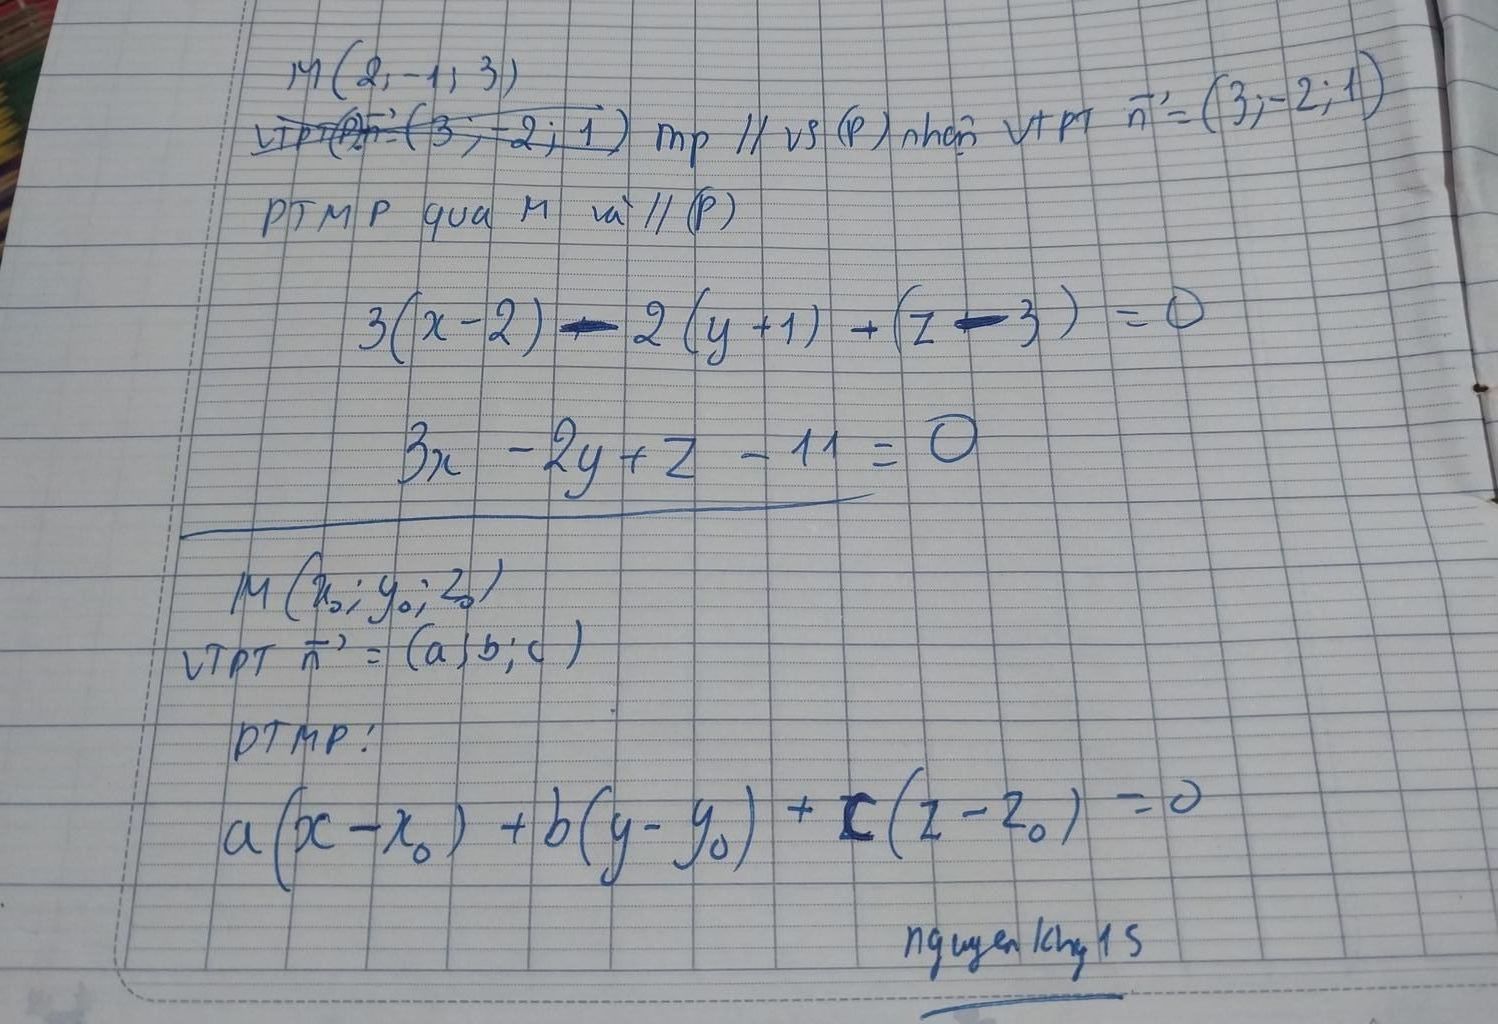 M(2; -1; 3)
VTPT(P) n⃗ = (3; -2; 1) mp // vs (P) nhận VTPT n⃗ = (3; -2; 1)
PTMP qua M và // (P)
3(x - 2) - 2(y + 1) + (z - 3) = 0
3x - 2y + z - 11 = 0
M(x₀; y₀; z₀)
VTPT n⃗ = (a; b; c)
PTMP:
a(x - x₀) + b(y - y₀) + c(z - z₀) = 0
nguyen